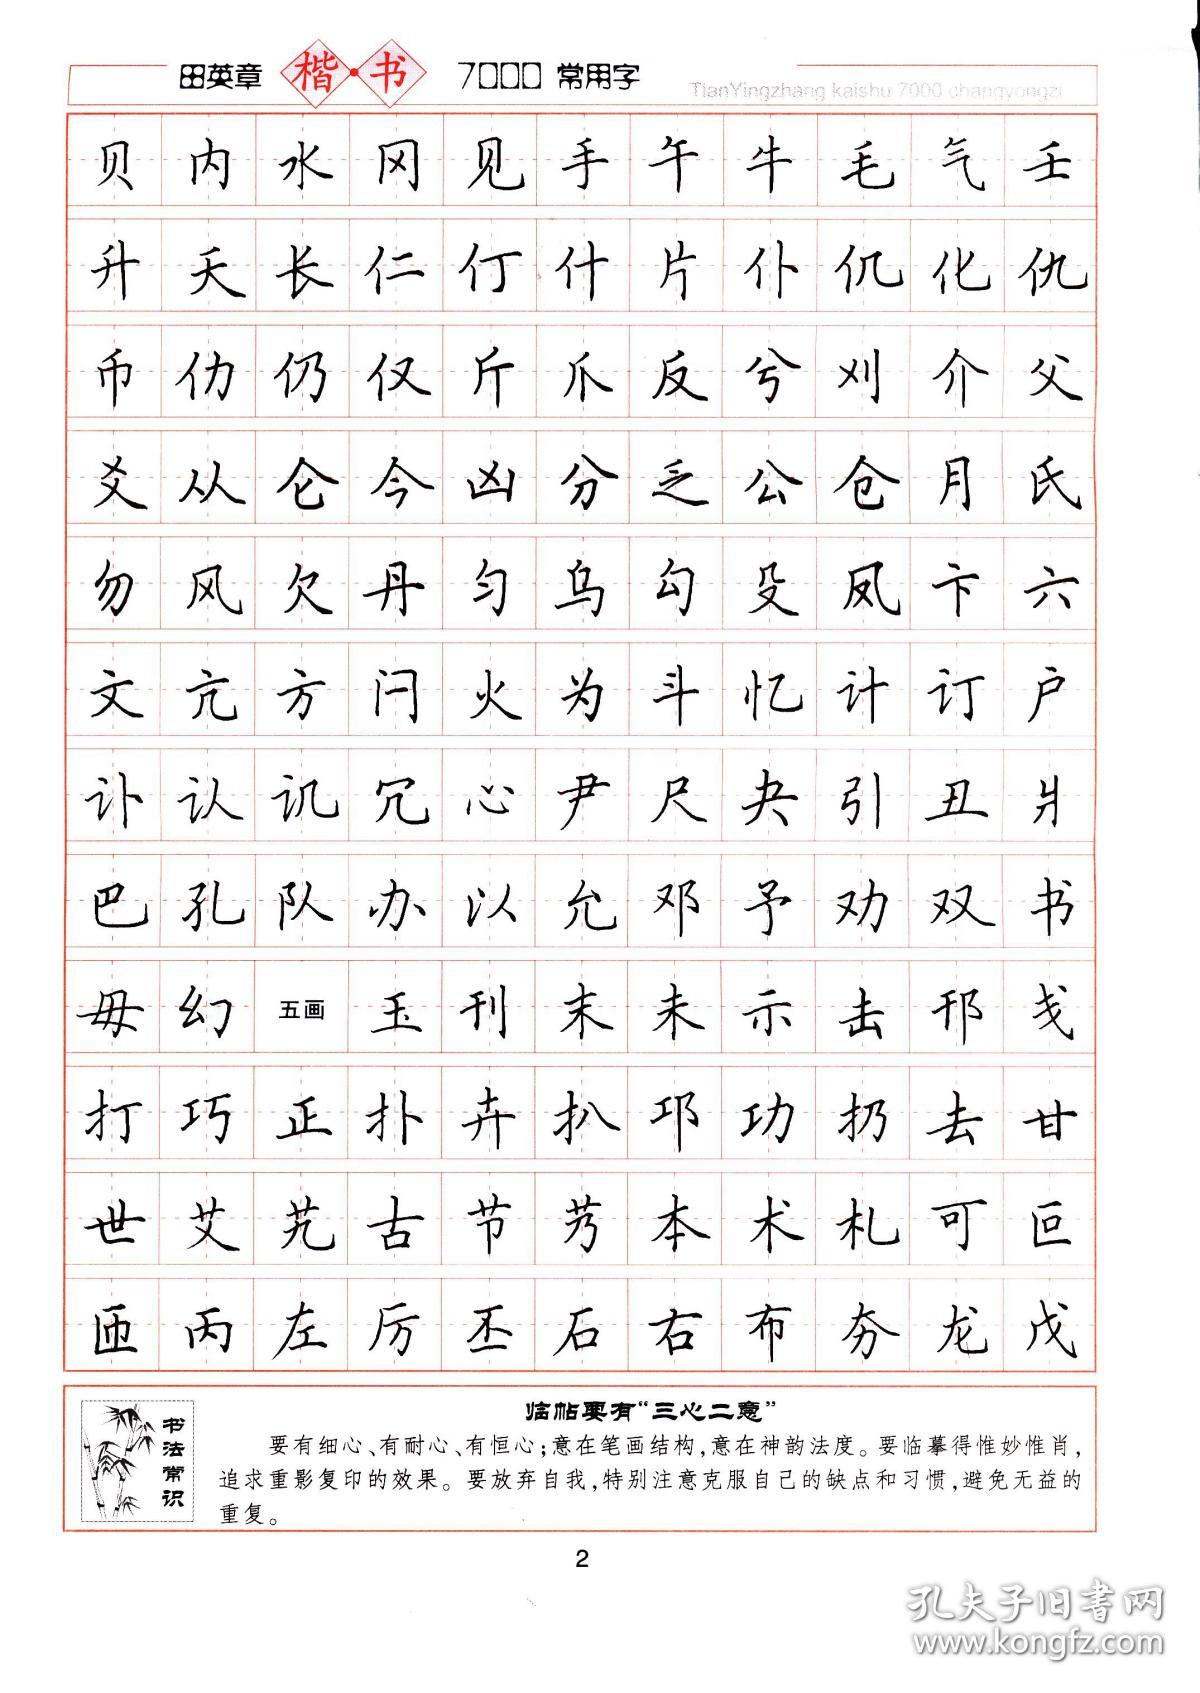 田英章 楷·书 7000 常用字
TianYingzhang kaishu 7000 changyongzi
贝 内 水 冈 见 手 午 牛 毛 气 壬
升 夭 长 仁 仃 什 片 仆 仉 化 仇
币 仂 仍 仅 斤 爪 反 兮 刈 介 父
爻 从 仑 今 凶 分 乏 公 仓 月 氏
勿 风 欠 丹 匀 乌 勾 殳 凤 卞 六
文 亢 方 闩 火 为 斗 忆 计 订 户
讣 认 讥 冗 心 尹 尺 夬 引 丑 爿
巴 孔 队 办 以 允 邓 予 劝 双 书
毋 幻 五画 玉 刊 末 未 示 击 邗 戋
打 巧 正 扑 卉 扒 邛 功 扔 去 甘
世 艾 艽 古 节 艿 本 术 札 可 叵
匝 丙 左 厉 丕 石 右 布 夯 龙 戊
书法常识
临帖要有“三心二意”
要有细心、有耐心、有恒心；意在笔画结构，意在神韵法度。要临摹得惟妙惟肖，
追求重影复印的效果。要放弃自我，特别注意克服自己的缺点和习惯，避免无益的
重复。
2
孔夫子旧书网
www.kongfz.com